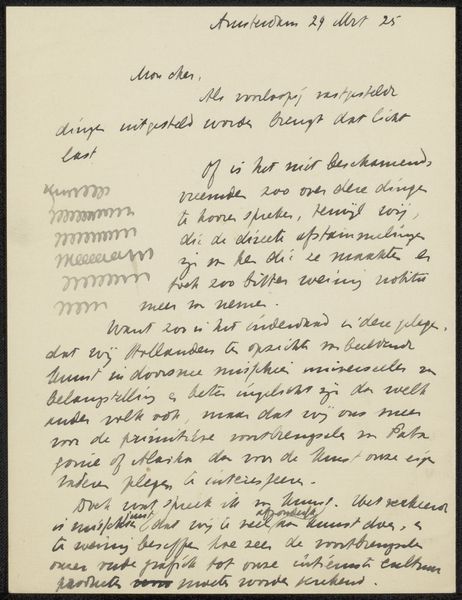 Amsterdam 29 Mrt 25
Mon cher,
Als voorloopig vastgestelde
dingen uitgesteld worden brengt dat licht
last
Of is het niet beschamend
vreemden zoo over deze dingen
te hooren spreken, terwijl wij,
die de directe afstammelingen
zijn van hen die ze maakten er
toch zoo bitter weinig notitie
meer van nemen.
Want zoo is het inderdaad in deze
dat wij Hollanders ten opzichte van beeldende
kunst in doorsnee misschien universeeler van
belangstelling en beter ingelicht zijn dan welk
ander volk ook, maar dat wij ons meer
voor de primitieve voortbrengselen van Pata
gonie of Alaska dan voor de kunst onzer eigen
vaderen plegen te interesseeren.
Doch wat spreek ik van kunst. Het verkeerde
is misschien juist dat wij te veel aan kunst doen, en
te weinig beseffen hoe zeer de voortbrengselen
onzer oude grafiek tot onze intiemste cultuur
producten moeten worden gerekend.